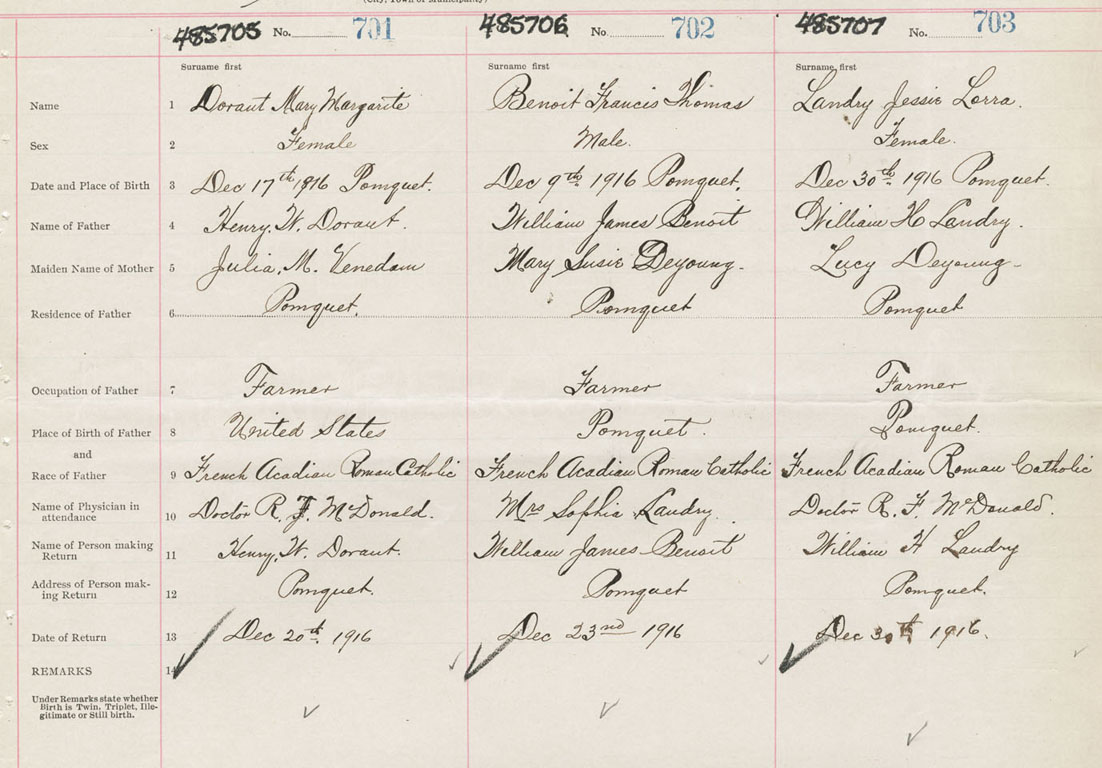 (City, Town or Municipality)
485705 No. 701 485706 No 702 485707 No. 703
Surname first Surname first Surname first
Name 1 Doraut Mary Margarite Benoit Francis Thomas Landry Jessie Lorra.
Sex 2 Female Male. Female.
Date and Place of Birth 3 Dec 17th 1816 Pomquet. Dec 9th 1916 Pomquet. Dec 30th 1916 Pomquet.
Name of Father 4 Henry. W. Doraut. William James Benoit William H Landry.
Maiden Name of Mother 5 Julia. M. Venedam Mary Susie Deyoung. Lucy Deyoung
Residence of Father 6 Pomquet. Pomquet Pomquet
Occupation of Father 7 Farmer Farmer Farmer
Place of Birth of Father 8 United States Pomquet. Pomquet.
and
Race of Father 9 French Acadian Roman Catholic French Acadian Roman Catholic French Acadian Roman Catholic
Name of Physician in
attendance 10 Doctor R. F. McDonald. Mrs Sophia Landry. Doctor R. F. McDonald.
Name of Person making
Return 11 Henry. W. Doraut. William James Benoit William H Landry
Address of Person mak-
ing Return 12 Pomquet. Pomquet Pomquet.
Date of Return 13 Dec 20th. 1916 Dec 23nd 1916 Dec 30th 1916.
REMARKS 14
Under Remarks state whether
Birth is Twin, Triplet, Ille-
gitimate or Still birth.